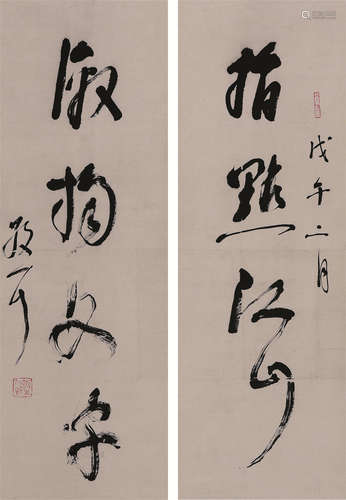 戊午二月
指點江山
激揚文字